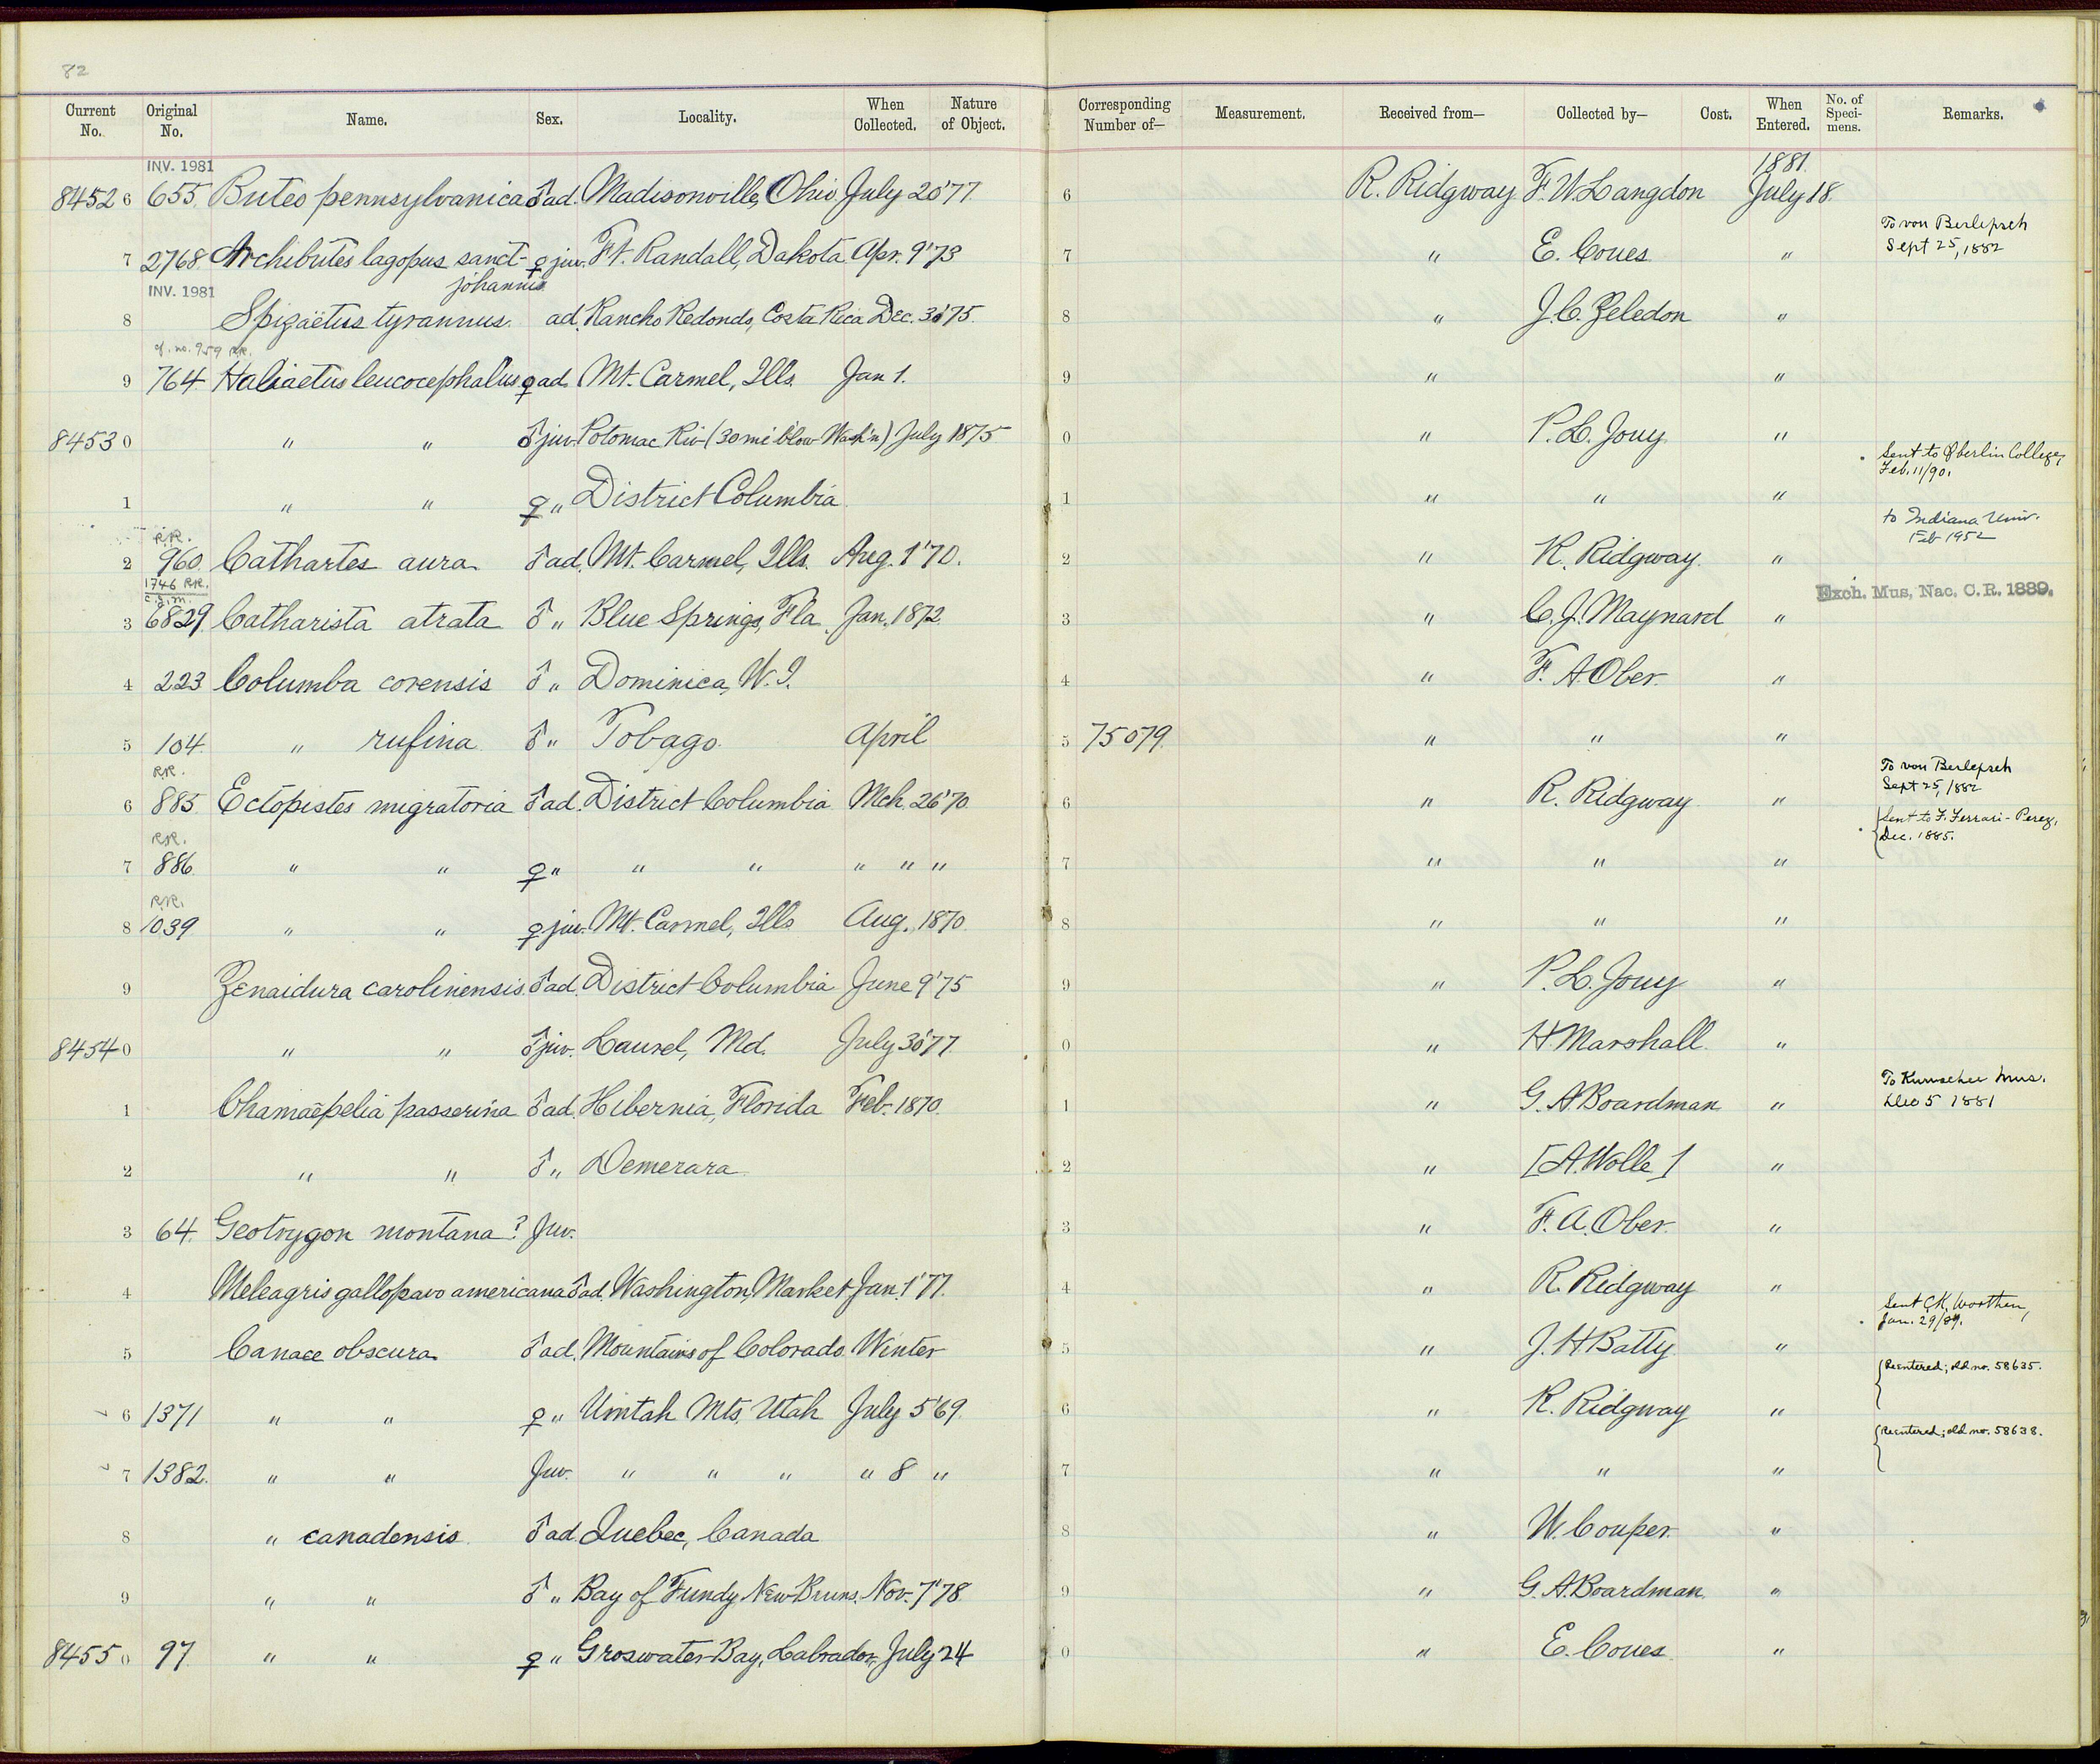 82
Current No. Original No. Name. Sex. Locality. When Collected. Nature of Object. Corresponding Number of— Measurement. Received from— Collected by— Cost. When Entered. No. of Speci-mens. Remarks.
INV. 1981 1881.
8452 6 655. Buteo pennsylvanica ♂ ad. Madisonville, Ohio. July 20'77. 6 R. Ridgway. F. W. Langdon July 18.
7 2768. Archibuteo lagopus sanct- johannis ♀ juv. Ft. Randall, Dakota. Apr. 9'73 7 " E. Coues " To von Berlepsch Sept 25, 1882
INV. 1981
8 Spizaëtus tyrannus. ad. Rancho Redondo, Costa Rica Dec. 30'75. 8 " J. C. Zeledon "
cf. no. 959 R.R.
9 764. Haliaetus leucocephalus ♀ ad. Mt. Carmel, Ills. Jan 1. 9 " "
8453 0 " " ♂ juv. Potomac Riv (30 mi blow Wash'n) July 1875 0 " P. L. Jouy. "
1 " " ♀ " District Columbia 1 " " " Sent to Oberlin College, Feb. 11/90.
R.R.
2 960. Cathartes aura ♂ ad. Mt. Carmel, Ills. Aug. 1'70. 2 " R. Ridgway. " to Indiana Univ. Feb 1952
1746 R.R.
C.J.M.
3 6829. Catharista atrata ♂ " Blue Springs, Fla. Jan. 1872. 3 " C. J. Maynard " Exch. Mus, Nac. C. R. 1889.
4 223 Columba corensis ♂ " Dominica, W. I. 4 " F. A. Ober. "
5 104. " rufina ♂ " Tobago. April 5 75079. " " "
R.R.
6 885. Ectopistes migratoria ♂ ad. District Columbia Mch. 26'70 6 " R. Ridgway. " To von Berlepsch Sept 25, 1882
R.R.
7 886. " " ♀ " " " " " " 7 " " " Sent to F. Ferrari-Perez, Dec. 1885.
R.R.
8 1039 " " ♀ juv. Mt. Carmel, Ills Aug. 1870. 8 " " "
9 Zenaidura carolinensis. ♂ ad. District Columbia June 9'75 9 " P. L. Jouy "
8454 0 " " ♂ juv. Laurel, Md. July 30'77. 0 " H. Marshall. "
1 Chamaepelia passerina ♂ ad. Hibernia, Florida Feb. 1870. 1 " G. A. Boardman " To Mus. Dec 5 1881
2 " " ♂ " Demerara 2 " [A. Wolle] "
3 64. Geotrygon montana? Juv. 3 " F. A. Ober. "
4 Meleagris gallopavo americana ♂ ad. Washington Market Jan. 1'77. 4 " R. Ridgway "
5 Canace obscura. ♂ ad. Mountains of Colorado. Winter 5 " J. H. Batty " Sent C. K. Worthen, Jan. 29/89.
6 1371 " " ♀ " Uintah Mts, Utah July 5'69. 6 " R. Ridgway " Reentered; old no. 58635.
7 1382. " " Juv. " " " " 8 " 7 " " " Reentered; old no. 58638.
8 " canadensis. ♂ ad. Quebec, Canada 8 " W. Couper. "
9 " " ♂ " Bay of Fundy, New Bruns. Nov. 7'78. 9 " G. A. Boardman. "
8455 0 97. " " ♀ " Groswater Bay, Labrador, July 24 0 " E. Coues. "